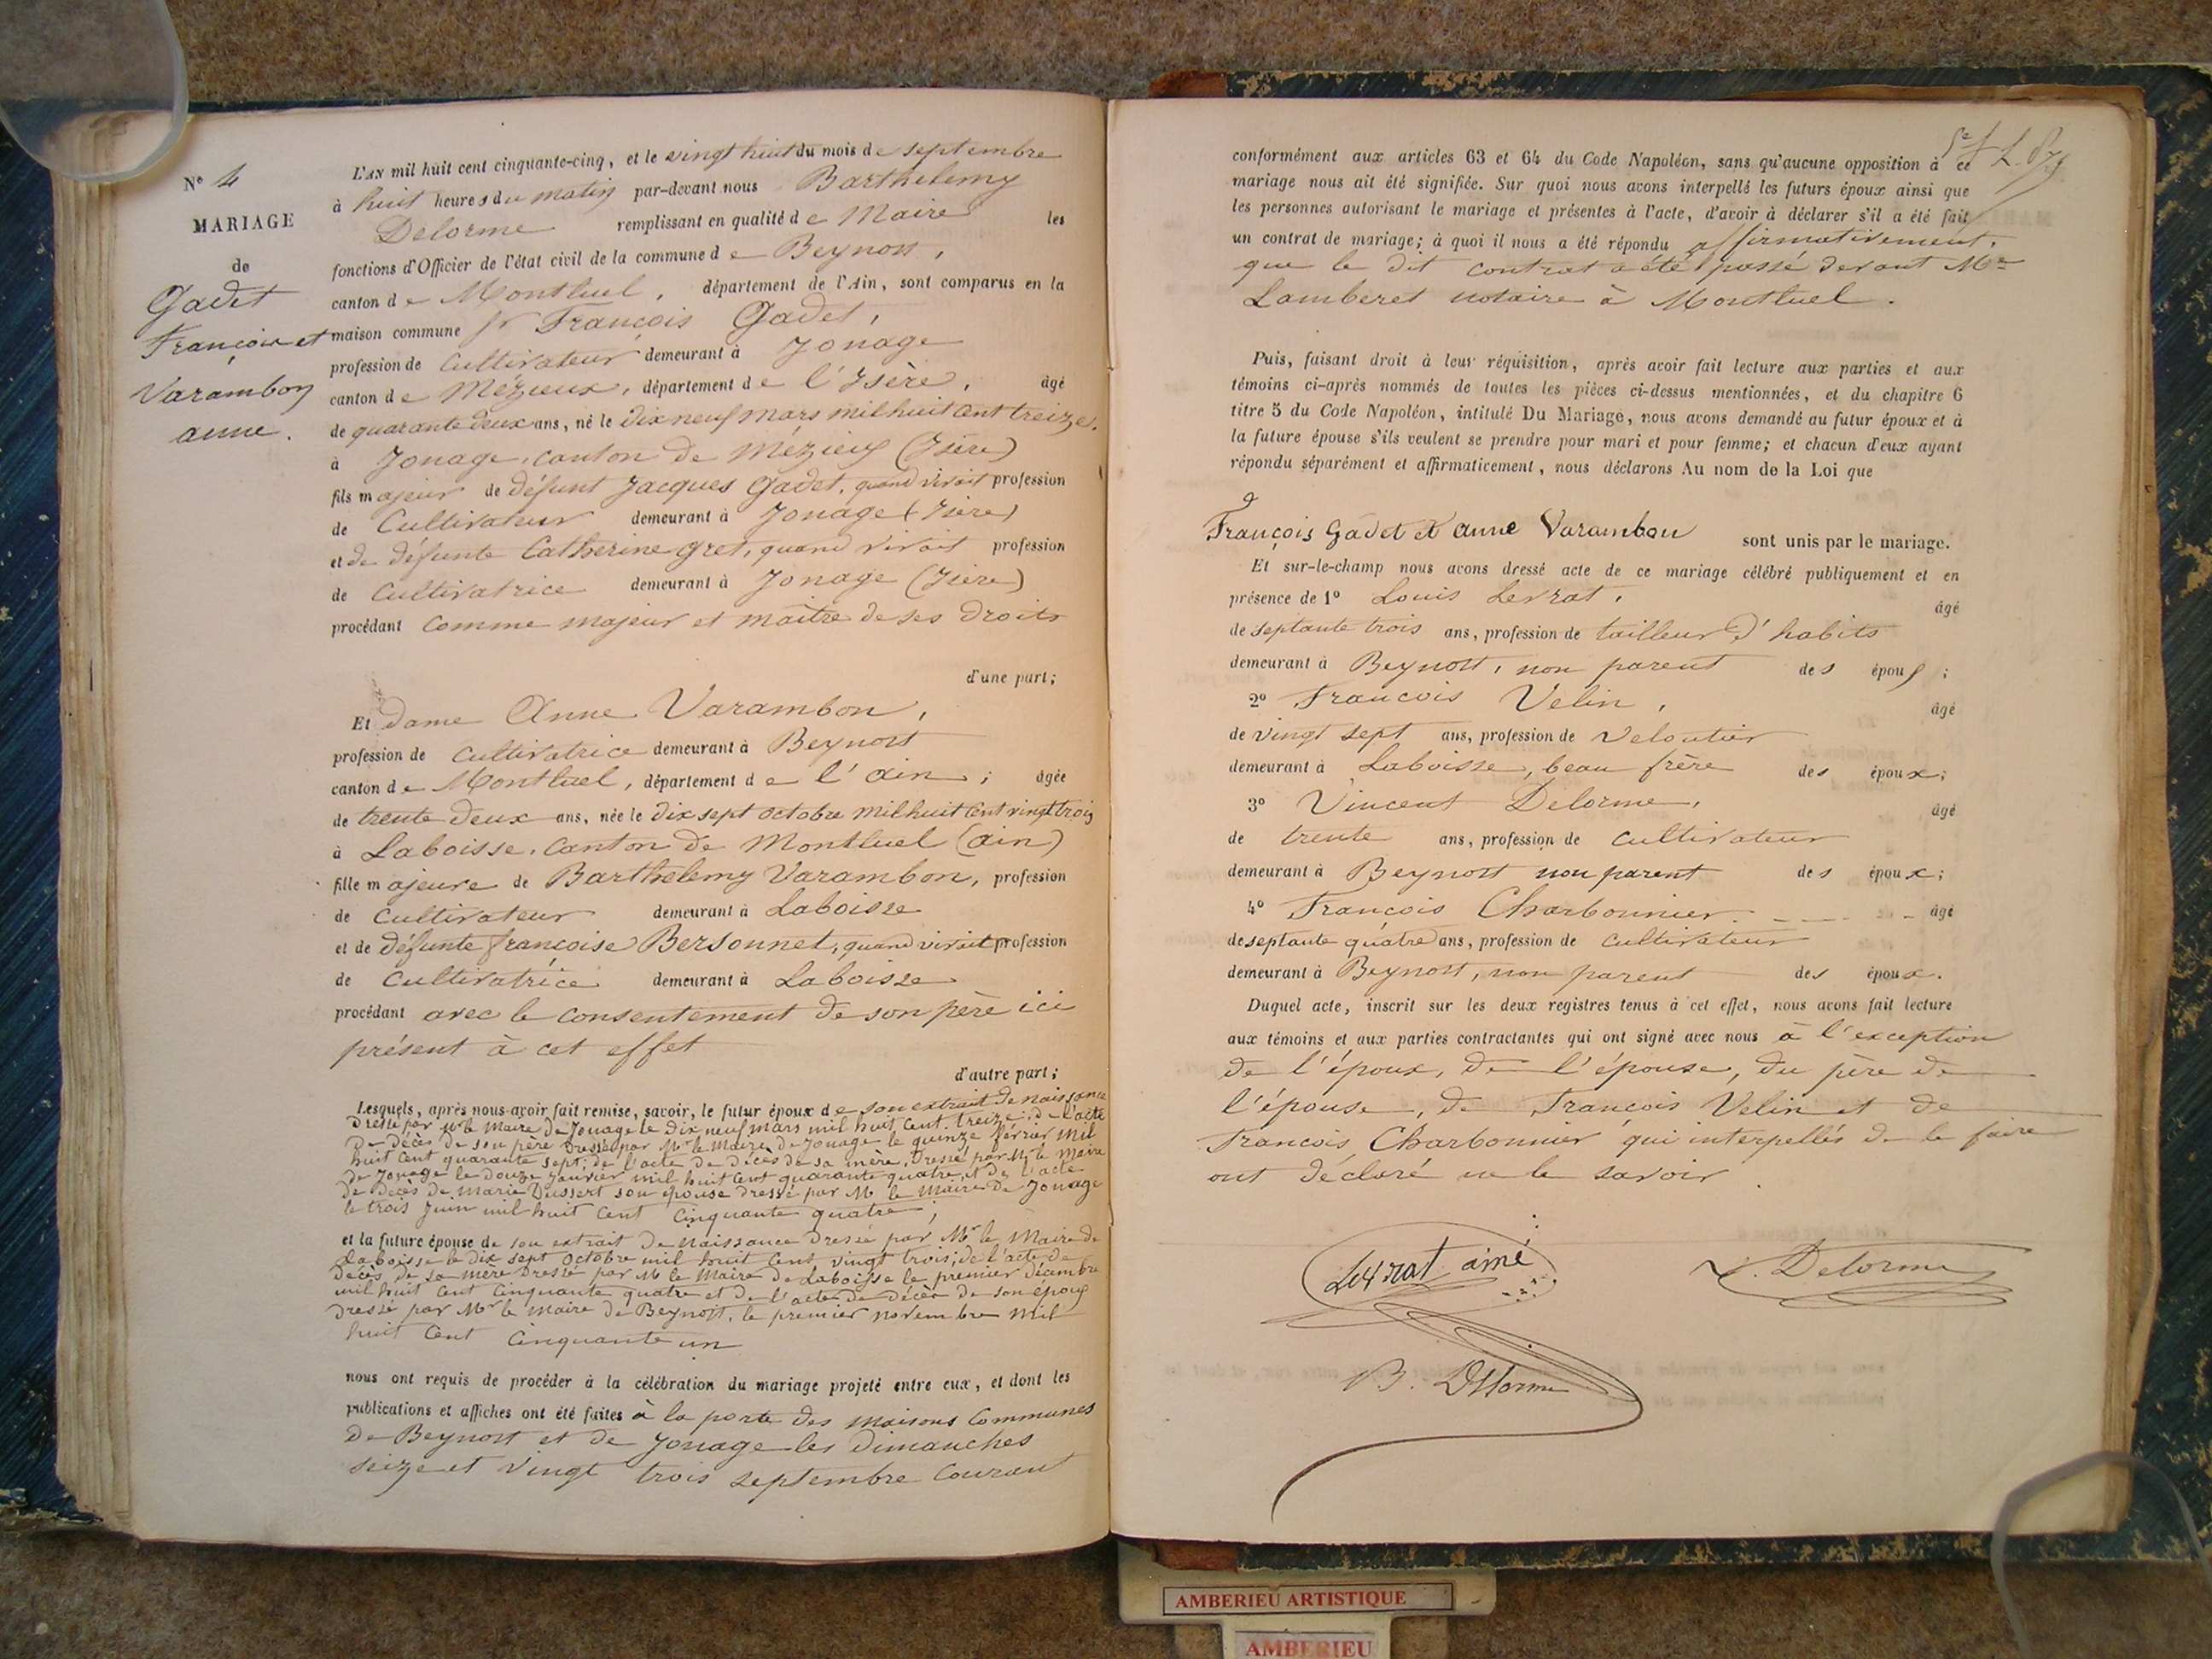 N° 4
MARIAGE
de
Gadet
François et
Varambon
anne.
L'AN mil huit cent cinquante-cinq, et le vingt huit du mois de septembre
à huit heures du matin par-devant nous Barthelemy
Delorme remplissant en qualité de Maire les
fonctions d'Officier de l'état civil de la commune de Beynost,
canton de Montluel, département de l'Ain, sont comparus en la
maison commune Sr François Gadet,
profession de cultivateur demeurant à Jonage
canton de Mézieux, département de l'Isère, âgé
de quarante deux ans, né le dix neuf mars mil huit cent treize.
à Jonage, canton de Mézieux (Isère)
fils majeur de défunt Jacques Gadet, quand vivait profession
de Cultivateur demeurant à Jonage (Isère)
et de défunte Catherine Gret, quand vivait profession
de Cultivatrice demeurant à Jonage (Isère)
procédant comme majeur et maître de ses droits
d'une part;
Et dame Anne Varambon,
profession de cultivatrice demeurant à Beynost
canton de Montluel, département de l'ain; âgée
de trente deux ans, née le dix sept octobre mil huit cent vingt trois
à Laboisse, canton de Montluel (ain)
fille majeure de Barthelemy Varambon, profession
de cultivateur demeurant à Laboisse
et de défunte françoise Bersonnet, quand vivait profession
de cultivatrice demeurant à Laboisse
procédant avec le consentement de son père ici
présent à cet effet
d'autre part;
Lesquels, après nous avoir fait remise, savoir, le futur époux de son extrait de naissance
dressé par Mr le Maire de Jonage le dix neuf mars mil huit cent treize; de l'acte
de décès de son père dressé par Mr le Maire de Jonage le quinze février mil
huit cent quarante sept; de l'acte de décès de sa mère, dressé par Mr le Maire
de Jonage le douze janvier mil huit cent quarante quatre, et de l'acte
de décès de Marie Dussert son épouse dressé par M le Maire de Jonage
le trois juin mil huit cent cinquante quatre;
et la future épouse de son extrait de naissance dressé par Mr le Maire de
Laboisse le dix sept octobre mil huit cent vingt trois; de l'acte de
décès de sa mère dressé par M le Maire de Laboisse le premier décembre
mil huit cent cinquante quatre et de l'acte de décès de son époux
dressé par Mr le maire de Beynost, le premier novembre mil
huit cent cinquante un
nous ont requis de procéder à la célébration du mariage projeté entre eux, et dont les
publications et affiches ont été faites à la porte des maisons Communes
de Beynost et de Jonage les dimanches
seize et vingt trois septembre courant
conformément aux articles 63 et 64 du Code Napoléon, sans qu'aucune opposition à ce
mariage nous ait été signifiée. Sur quoi nous avons interpellé les futurs époux ainsi que
les personnes autorisant le mariage et présentes à l'acte, d'avoir à déclarer s'il a été fait
un contrat de mariage; à quoi il nous a été répondu affirmativement,
que le dit contrat a été passé devant Me
Lamberet notaire à Montluel.
Puis, faisant droit à leur réquisition, après avoir fait lecture aux parties et aux
témoins ci-après nommés de toutes les pièces ci-dessus mentionnées, et du chapitre 6
titre 5 du Code Napoléon, intitulé Du Mariage, nous avons demandé au futur époux et à
la future épouse s'ils veulent se prendre pour mari et pour femme; et chacun d'eux ayant
répondu séparément et affirmativement, nous déclarons Au nom de la Loi que
François Gadet et anne Varambon sont unis par le mariage.
Et sur-le-champ nous avons dressé acte de ce mariage célébré publiquement et en
présence de 1° Louis Levrat, âgé
de septante trois ans, profession de tailleur d'habits
demeurant à Beynost, non parent des époux;
2° François Velin, âgé
de vingt sept ans, profession de veloutier
demeurant à Laboisse, beau frère des époux;
3° Vincent Delorme, âgé
de trente ans, profession de cultivateur
demeurant à Beynost non parent des époux;
4° François Charbonnier. âgé
de septante quatre ans, profession de cultivateur
demeurant à Beynost, non parent des époux.
Duquel acte, inscrit sur les deux registres tenus à cet effet, nous avons fait lecture
aux témoins et aux parties contractantes qui ont signé avec nous à l'exception
de l'époux, de l'épouse, du père de
l'épouse, de François Velin et de
François Charbonnier qui interpellés de le faire
ont déclaré ne le savoir.
Levrat ainé
V. Delorme
B. Delorme
AMBERIEU ARTISTIQUE
AMBERIEU